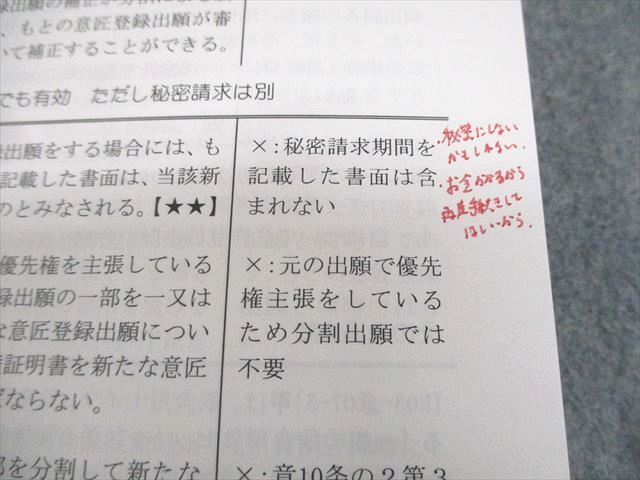 出願の補正が分割による新
、もとの意匠登録出願が審
いて補正することができる。
でも有効　ただし秘密請求は別
出願をする場合には、も
記載した書面は、当該新
のとみなされる。【★★】
×：秘密請求期間を
記載した書面は含
まれない
・秘密にしない
かもしれない.
・お金かかるから
再度手続きして
ほしいから.
優先権を主張している
録出願の一部を一又は
な意匠登録出願につい
証明書を新たな意匠
ばならない。
×：元の出願で優先
権主張をしている
ため分割出願では
不要
部を分割して新たな
×：意10条の2第3